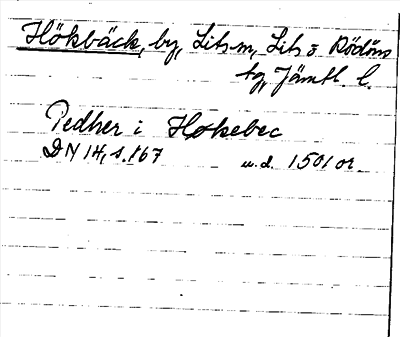 Hökbäck, by, Lits sn, Lits o Rödöns
tg, Jämtl. l.
Pedher i Hokebec
DN 14, s. 167 u.d. 1501 or